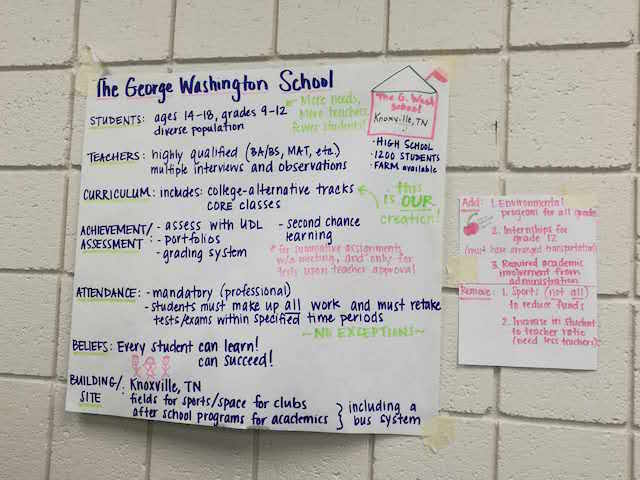 The George Washington School
STUDENTS: ages 14-18, grades 9-12
diverse population
← More needs,
More teachers,
fewer students!
The G. Wash
School
Knoxville, TN
• HIGH SCHOOL
• 1200 STUDENTS
• FARM available
TEACHERS: highly qualified (BA/BS, MAT, etc.)
multiple interviews and observations
CURRICULUM: includes: college-alternative tracks
CORE classes
← this
is OUR
creation!
ACHIEVEMENT/ - assess with UDL - second chance
ASSESSMENT: - portfolios learning
- grading system
assignments
w/o meeting, and only for
tests upon teacher approval
ATTENDANCE: - mandatory (professional)
- students must make up all work and must retake
tests/exams within specified time periods
~NO EXCEPTIONS~
BELIEFS: Every student can learn!
can succeed!
BUILDING/: Knoxville, TN
SITE fields for sports/space for clubs
after school programs for academics } including a
bus system
Add: 1. Environmental
program for all grades
2. Internships for
grade 12
(must have arranged transportation)
3. Required academic
involvement from
administration
Remove: 1. Sports (not all)
to reduce funds
2. Increase in student
to teacher ratio
(need less teachers)